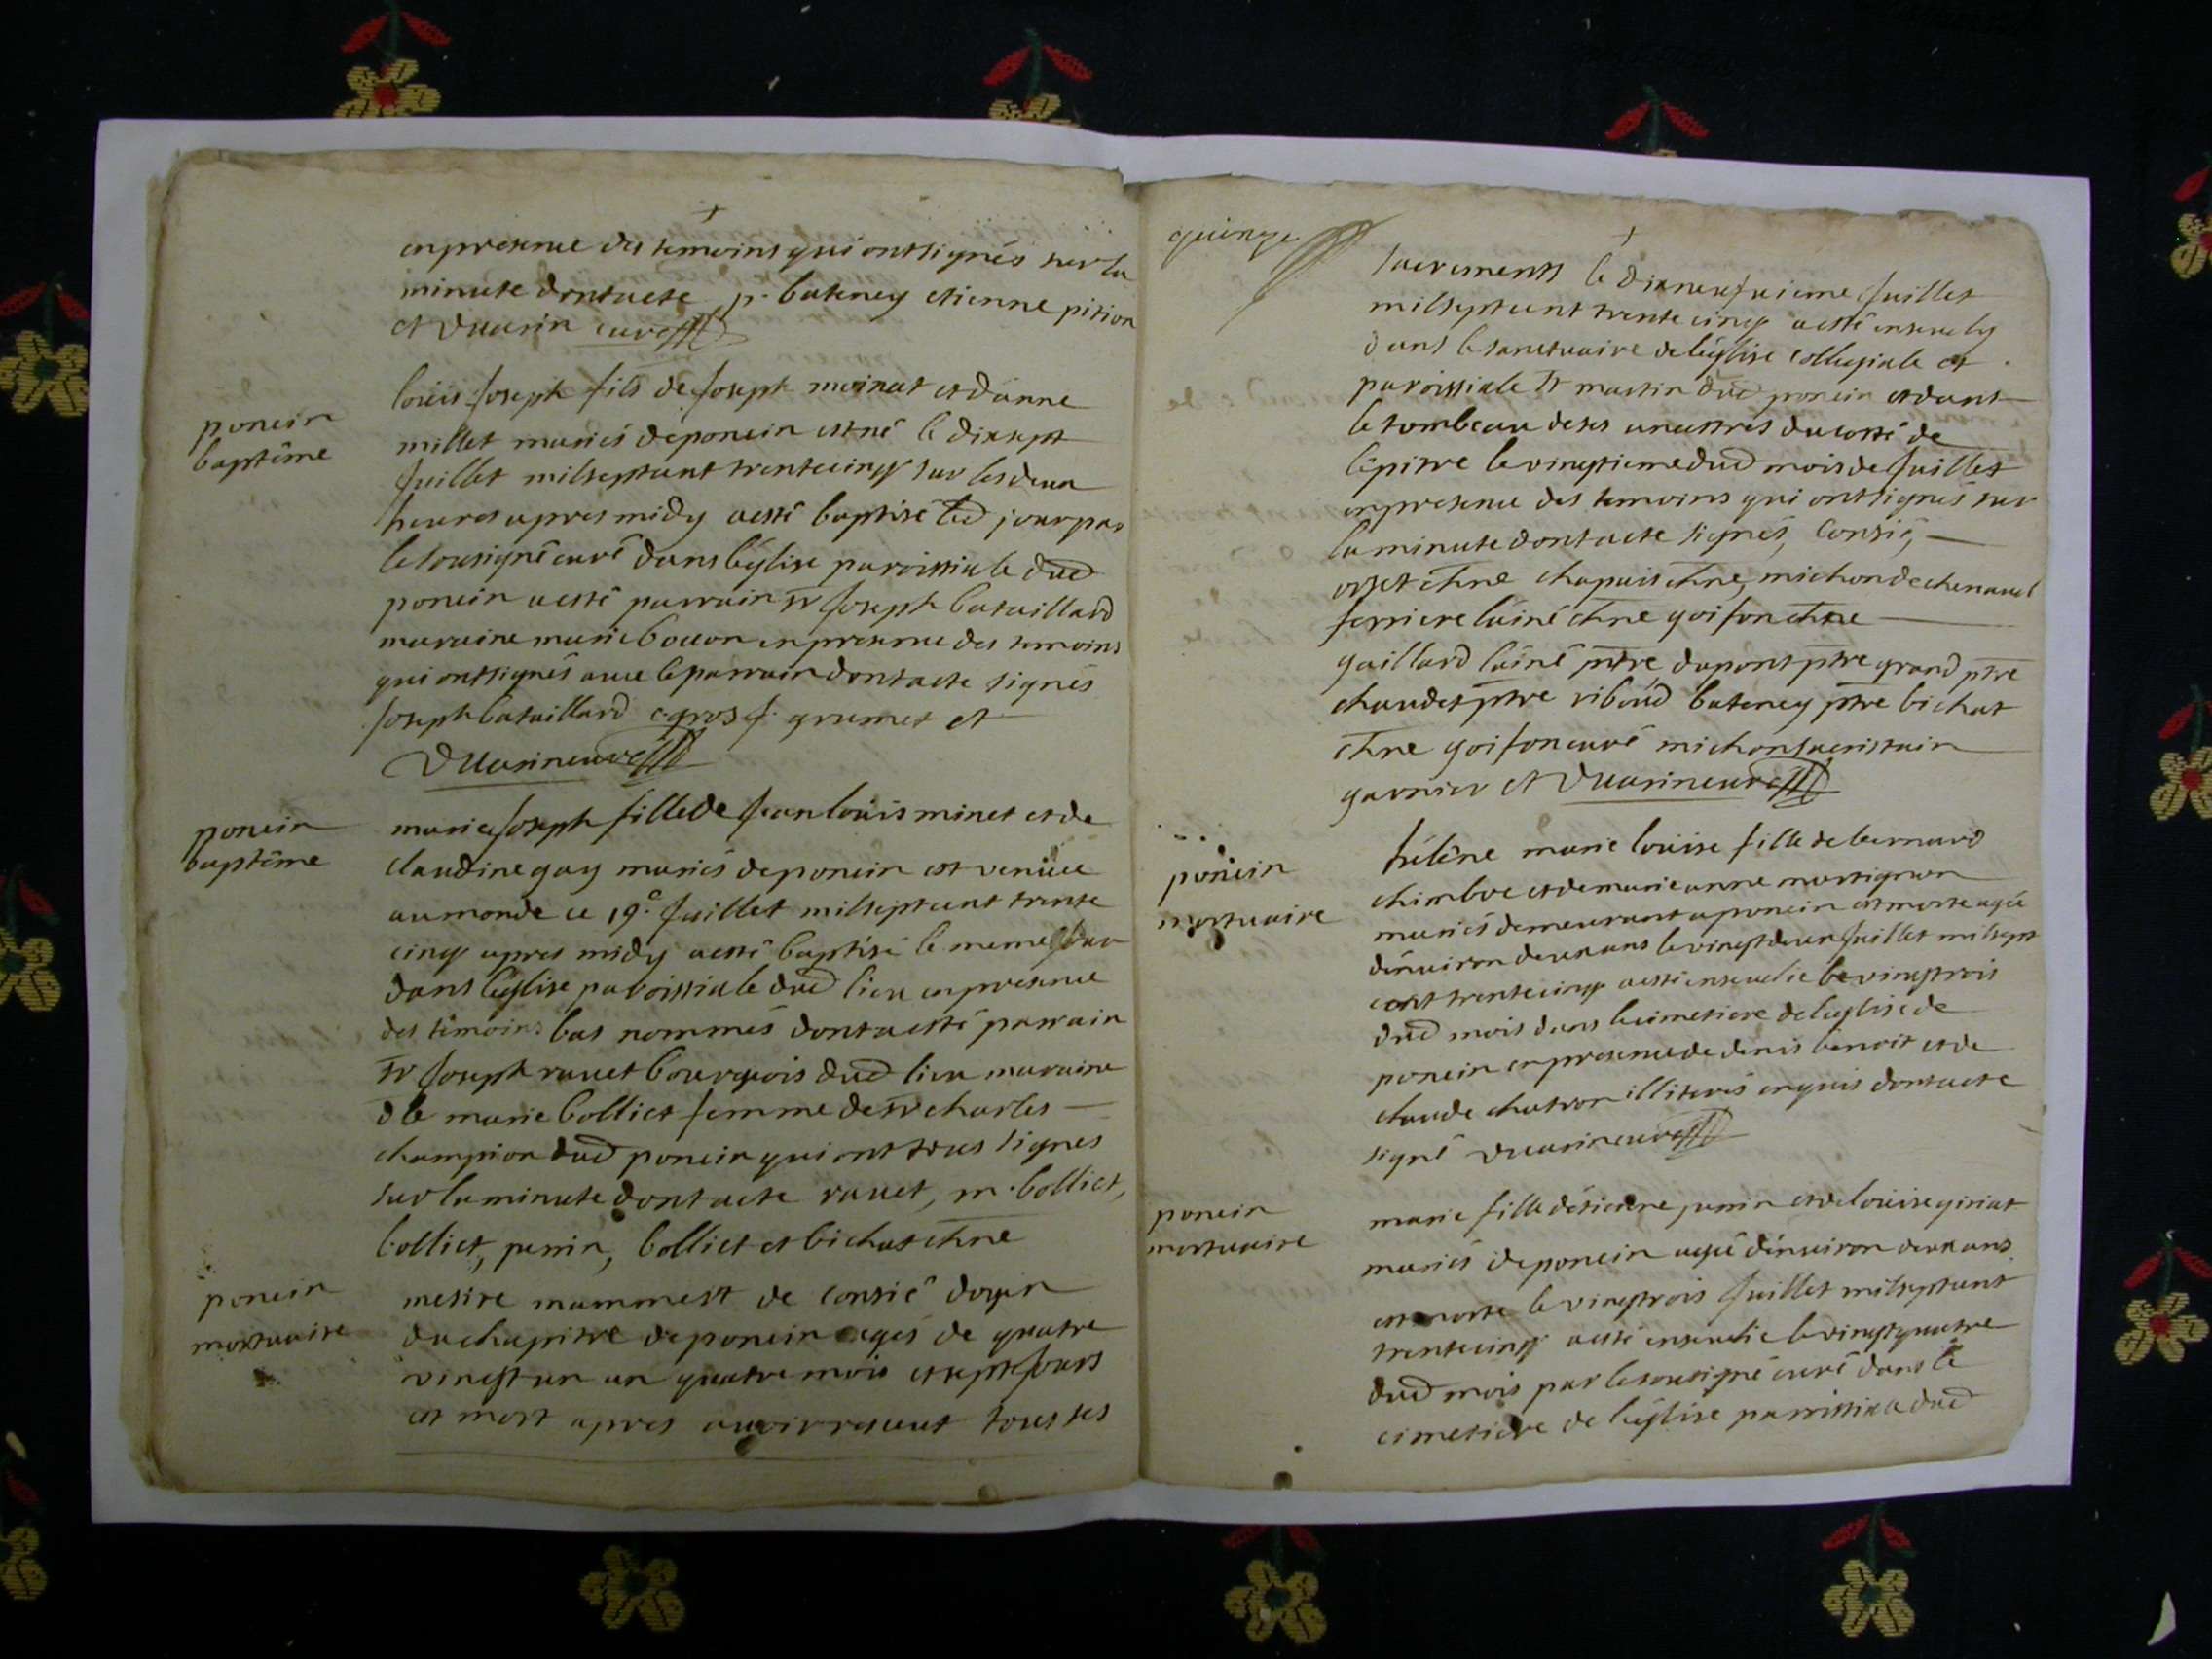 en presence des temoins qui ont signés sur la
minute dont acte p. bateney etienne pition
et Duarin curé
poncin
baptême
loüis joseph fils de joseph moinat et d'anne
millet mariés de poncin est né le dixsept
juillet mil sept cent trente cinq sur les deux
heures apres midy a esté baptisé led jour par
le sousigné curé dans l'église paroissiale dud
poncin a esté parrain sr joseph bataillard
maraine marie bouon en presence des temoins
qui ont signés avec le parrain dont acte signés
joseph bataillard c. gros j. grumet et
Duarin curé
poncin
baptême
marie joseph fille de jean loüis minet et de
claudine gay mariés de poncin est venüe
au monde ce 19e juillet mil sept cent trente
cinq apres midy a esté baptisé le meme jour
dans l'église paroissiale dud lieu en presence
des témoins bas nommés dont a esté parrain
sr joseph ravet bourgeois dud lieu maraine
dlle marie bolliet femme de sr charles
champion dud poncin qui ont tous signes
sur la minute dont acte ravet, m. bolliet,
bolliet, perrin, bolliet et bichat chne
poncin
mortuaire
messire mammest de conzié doyen
du chapitre de poncin agés de quatre
vingt un an quatre mois et sept jours
est mort apres avoir reseut tous ses
quinze
sacrements le dixneufvieme juillet
mil sept cent trente cinq a esté ensevely
dans le sanctuaire de l'église collegiale et
paroissiale st martin dud poncin et dans
le tombeau de ses ancestres du costé de
l'épitre le vingtieme dud mois de juillet
en presence des temoins qui ont signés sur
la minute dont acte signés, Conzié,
orset chne chapuis chne, michon de chenavel
ferriere lainé chne goifon chne
gaillard lainé ptre dupont ptre grand ptre
chaudet ptre riboud bateney ptre bichat
chne goifon curé michon sacristain
garnier et Duarin curé
poncin
mortuaire
hélêne marie loüise fille de bernard
chimboe et de marie anne martignon
mariés demeurant a poncin est morte agée
d'énviron deux ans le vingt deux juillet mil sept
cent trente cinq a esté ensevelie le vingt trois
dud mois dans le cimetiere de l'église de
poncin en presence de denis benoit et de
claude chatron illiterés enquis dont acte
signé Duarin curé
poncin
mortuaire
marie fille d'étienne janin et de loüise giriat
mariés de poncin agée d'énviron deux ans
est morte le vingt trois juillet mil sept cent
trente cinq a esté ensevelie le vingt quatre
dud mois par le sousigné curé dans le
cimetiere de l'église paroissiale dud